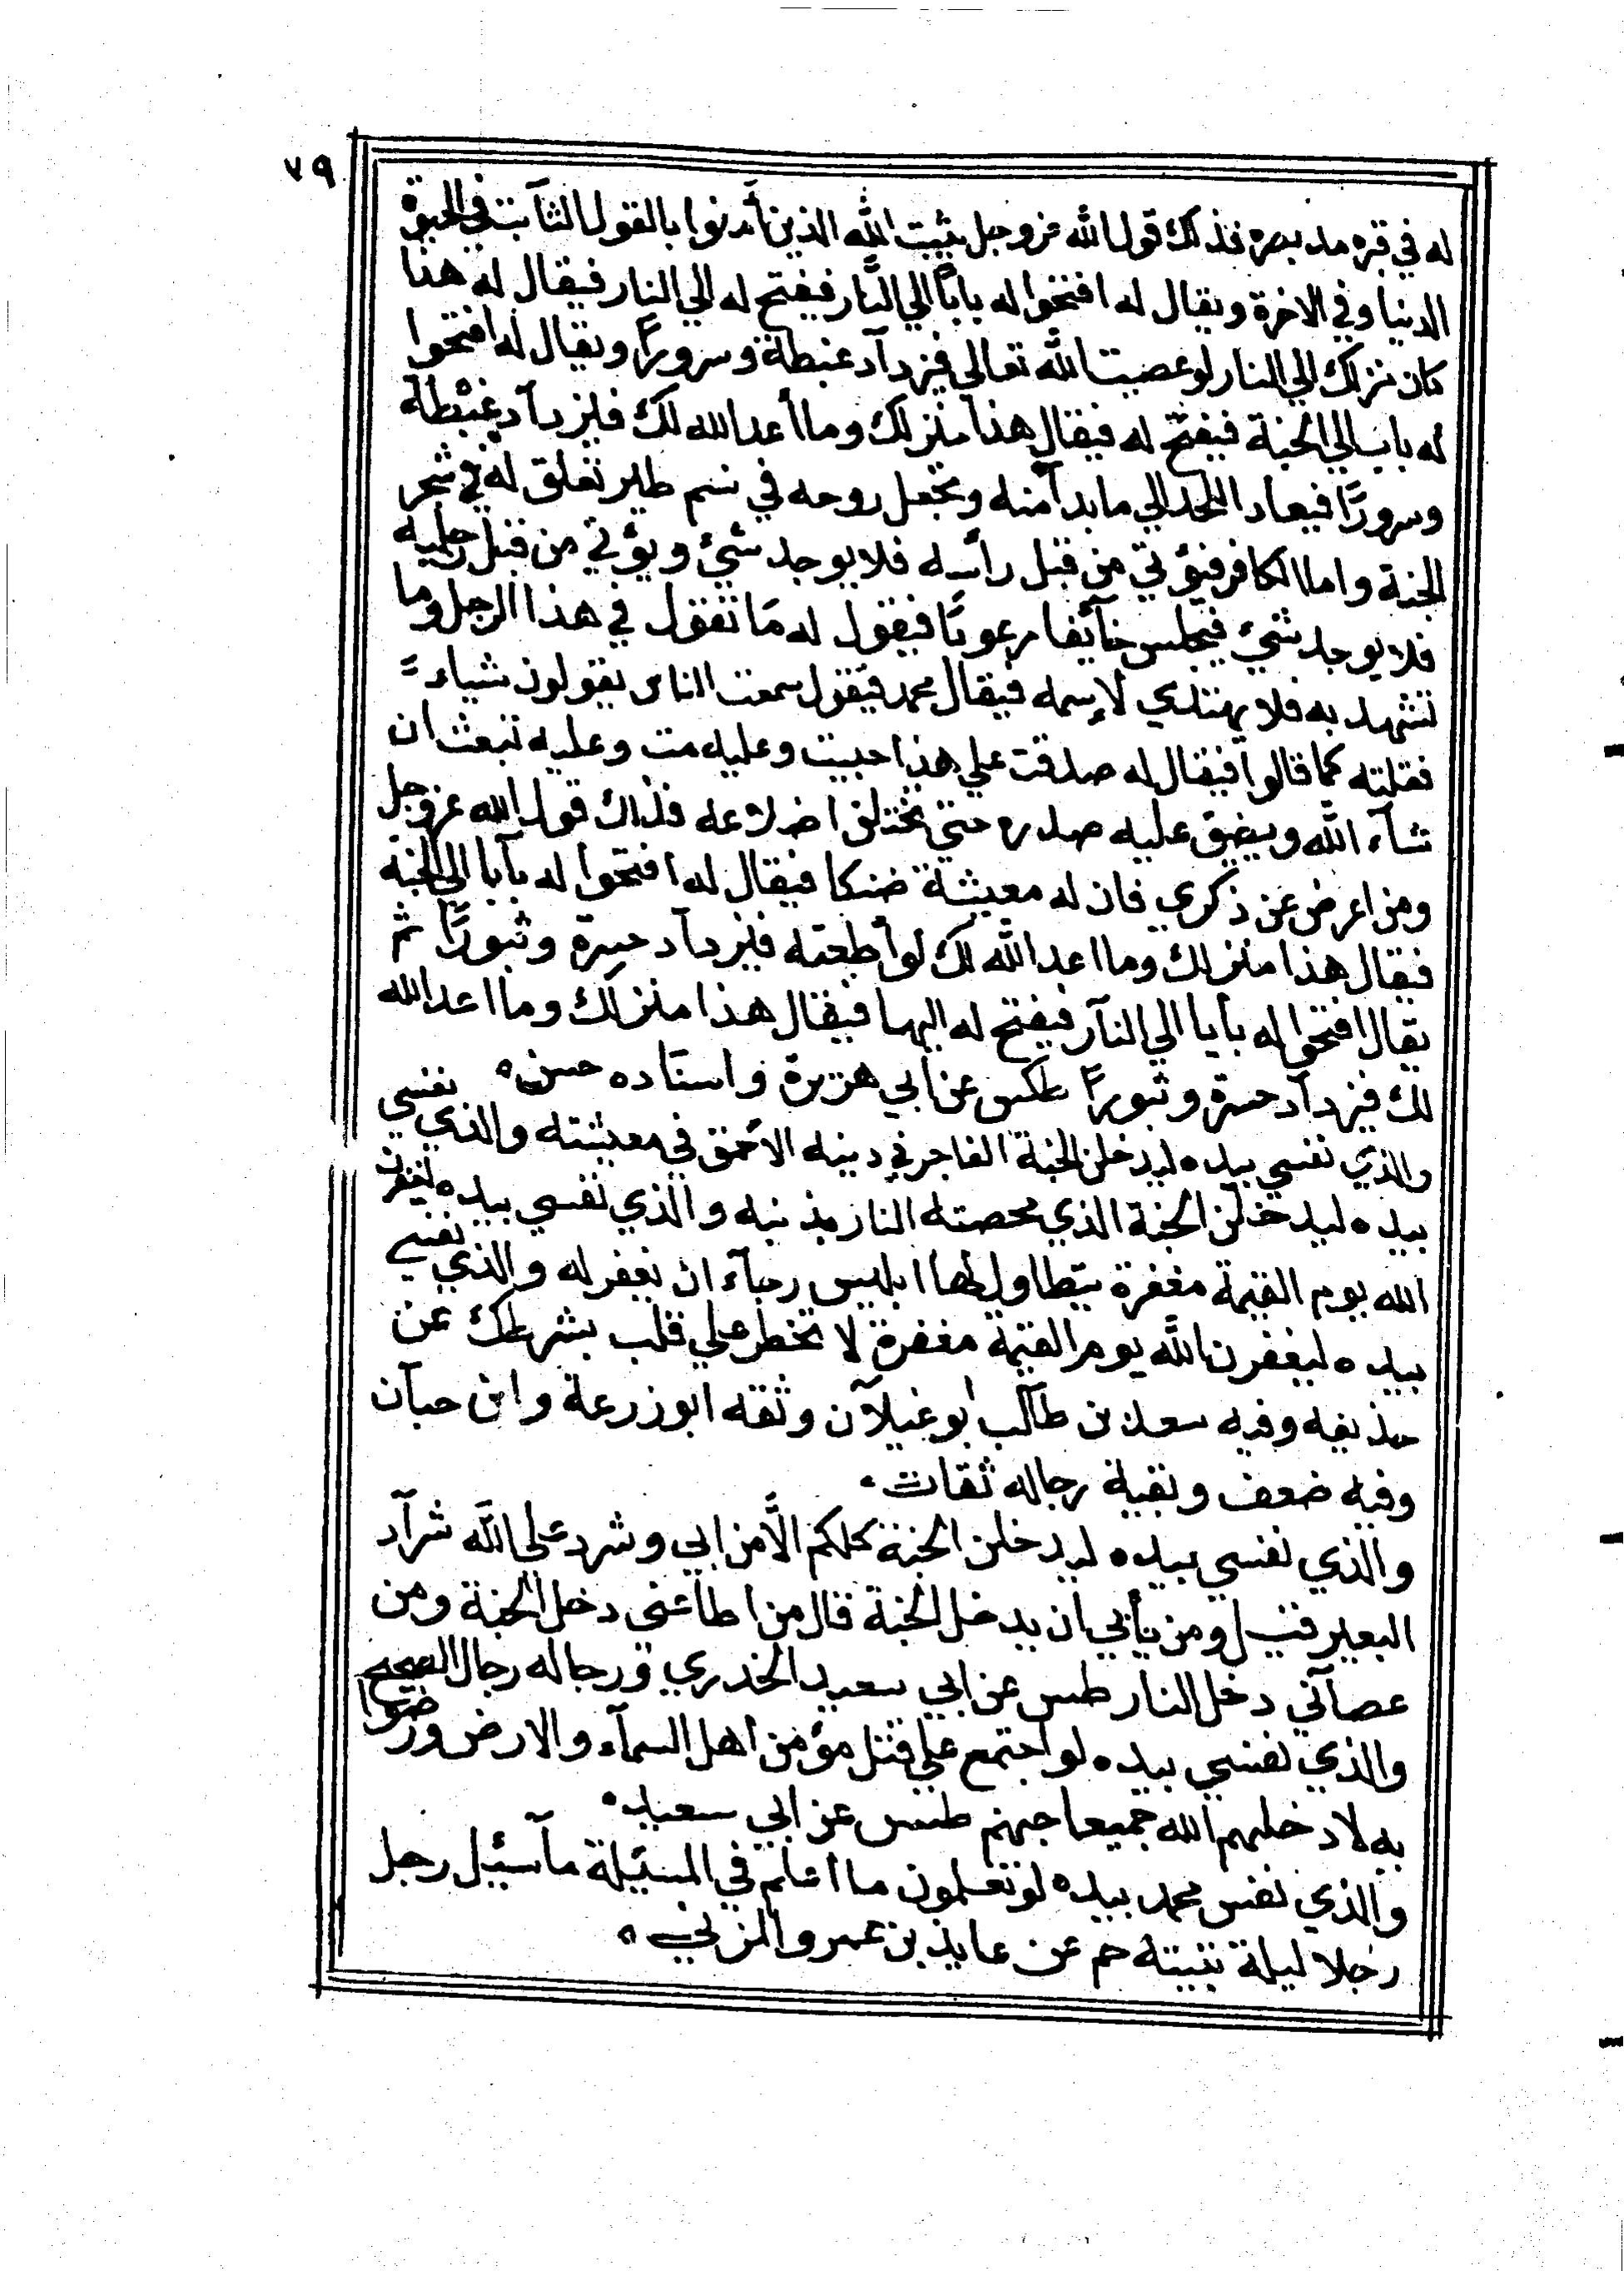 ٧٩
له في قبره مد بصره فذلك قول الله عز وجل يثبت الله الذين أمنوا بالقول الثآبت في الحيوة
الدنيا وفي الاخرة ويقال له افتحوا له باباً الي النَّار فيفتح له الي النار فيقال له هذا
كان منزلك الي النار لو عصيت الله تعالي فيزدآد غبطة وسروراً ويقال له افتحوا
له باب الي الجنة فيفتح له فيقال هذا منزلك وما أعد الله لك فيزدآد غبْطة
وسرورًا فيعاد الجلد الي ما بدأ منه وتجعل روحه في نسم طاير تعلق له في شجر
الجنة واما الكافر فيؤتي من قبل رأسه فلا يوجد شيئ ويؤتي من قبل رجليه
فلا يوجد شيئ فيجلس خآئفا مرعوبًا فيقول له مَا تقول في هذا الرجل وما
تشهد به فلا يهتدي لإسمه فيقال محمد فيقول سمعت الناس يقولون شياءً
فقلته كما قالوا فيقال له صدقت علي هذا حييت وعليه مت وعليه تبعث ان
شآء الله ويضيق عليه صدره حتي تختلف اضلاعه فذلك قول الله عز وجل
ومن اعرض عن ذكري فان له معيشة ضنكا فيقال له افتحوا له بآبا الي الجنة
فيقال هذا منزلك وما اعد الله لك لو أطعته فيزدآد حسرة وثبورًا ثم
يقال افتحوا له بآبا الي النآر فيفتح له اليها فيقال هذا منزلك وما اعد الله
لك فيزدآد حسرة وثبوراً طكس عن ابي هريرة واسناده حسن
والذي نفسي بيده ليدخلن الجنة الفاجر في دينه الأحمق في معيشته والذي نفسي
بيده ليدخلن الجنة الذي محصته النار بذنبه والذي نفسي بيده ليغفرن
الله يوم القيمة مغفرة يتطاول لها ابليس رجآء ان يغفر له والذي نفسي
بيده ليغفرن الله يوم القيمة مغفرة لا تخطر علي قلب بشر طك عن
حذيفه وفيه سعد بن طآلب ابو غيلآن وثقه ابو زرعة وابن حبآن
وفيه ضعف وبقية رجاله ثقات
والذي نفسي بيده ليدخلن الجنة كلكم الَّا من ابي وشرد على الله شرآد
البعير قيل ومن يأبي ان يدخل الجنة قال من اطاعني دخل الجنة ومن
عصآني دخل النار طس عن ابي سعيد الخدري ورجاله رجال الصحيح
والذي نفسي بيده لو اجتمع علي قتل مؤمن اهل السمآء والارض ورضوا
به لادخلهم الله جميعا جهنم طس عن ابي سعيد
والذي نفس محمد بيده لو تعلمون ما أعلم في المسئلة مآ سئل رجل
رجلا ليلة تبيته حم عن عايذ بن عمرو المزني